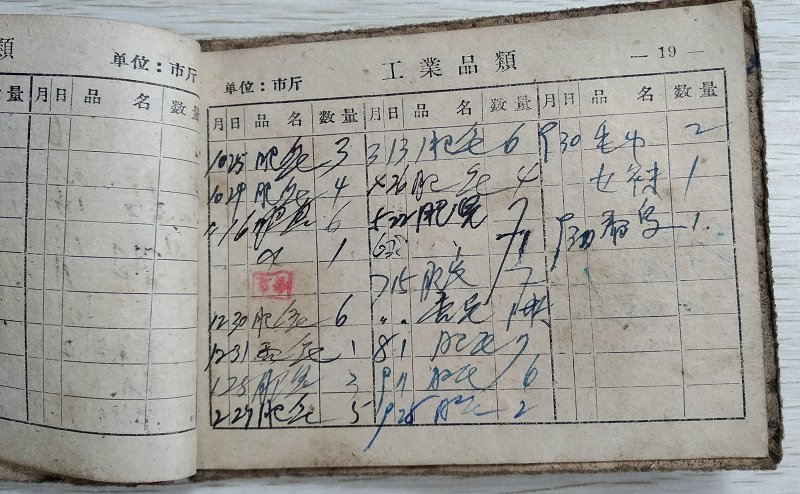 類 单位：市斤
量 月 日 品 名 数 量
工業品類
单位：市斤
— 19 —
月 日 品 名 数 量 月 日 品 名 数 量 月 日 品 名 数 量
10 25 肥皂 3 3 13 肥皂 6 9 30 毛巾 2
10 29 肥皂 4 4 26 肥皂 4 女袜 1
11 16 肥皂 6 5 22 肥皂 7 9 30 香皂 1
1
7 15 肥皂 7
12 30 肥皂 6 〃 〃 香皂
12 31 香皂 1 8 1 肥皂 7
1 28 肥皂 3 9 11 肥皂 6
2 29 肥皂 5 9 28 肥皂 2